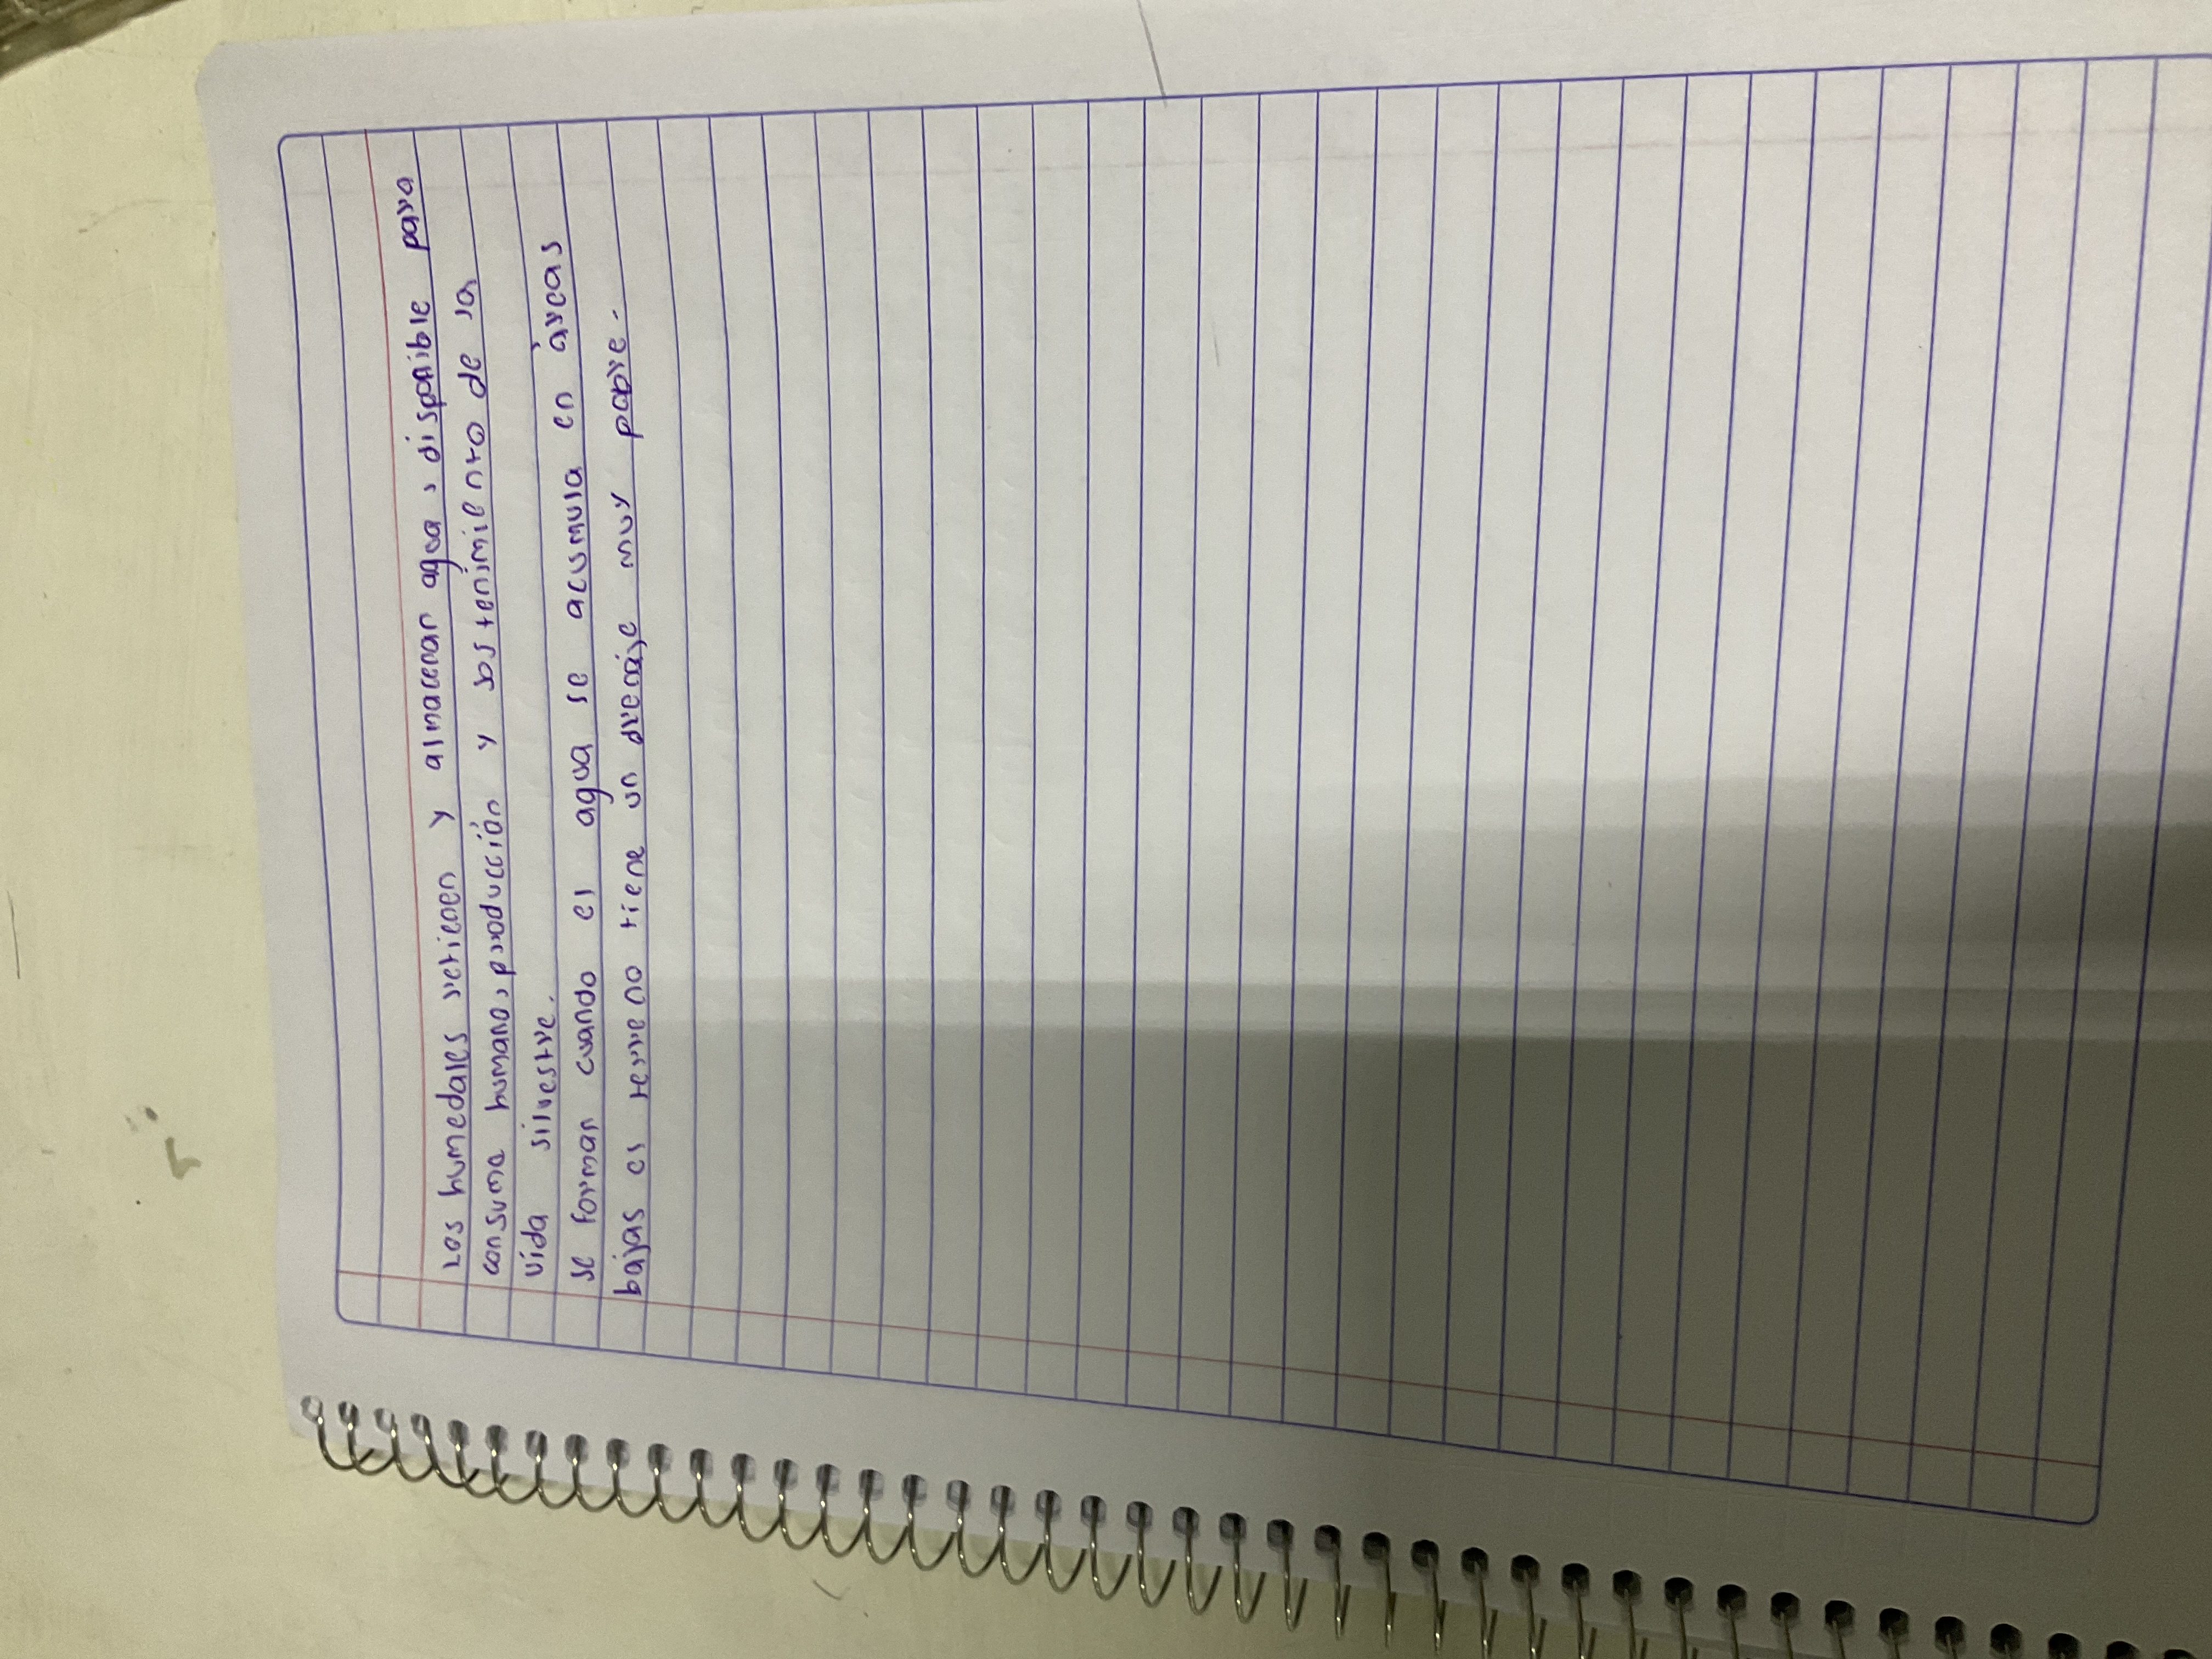 Los humedales retienen y almacenan agua, disponible para
consumo humano, producción y sostenimiento de la
vida silvestre.
se forman cuando el agua se acumula en áreas
bajas es terreno tiene un drenaje muy pobre.